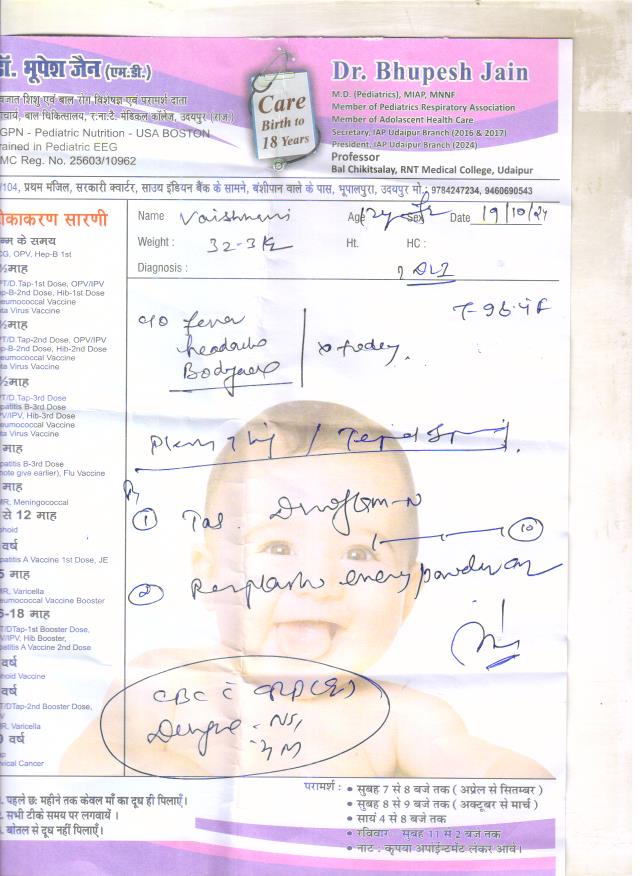 डॉ. भूपेश जैन (एम.डी.)
नवजात शिशु एवं बाल रोग विशेषज्ञ एवं परामर्श दाता
बाल चिकित्सालय, र.ना.टे. मेडिकल कॉलेज, उदयपुर (राज.)
GPN - Pediatric Nutrition - USA BOSTON
Trained in Pediatric EEG
MC Reg. No. 25603/10962
Care
Birth to
18 Years
Dr. Bhupesh Jain
M.D. (Pediatrics), MIAP, MNNF
Member of Pediatrics Respiratory Association
Member of Adolascent Health Care
Secretary, IAP Udaipur Branch (2016 & 2017)
President, IAP Udaipur Branch (2024)
Professor
Bal Chikitsalay, RNT Medical College, Udaipur
/104, प्रथम मंजिल, सरकारी क्वार्टर, साउथ इंडियन बैंक के सामने, बंशीपान वाले के पास, भूपालपुरा, उदयपुर मो.: 9784247234, 9460690543
Name Vaishnavi Age 12y Sex Date 19/10/24
Weight : 32-3 kg Ht. HC :
Diagnosis :
T-98.4F
c/o fever
headache
Bodyache
Plenty / Tepid
Rx
① Tab.
10
② energy powder
CBC c CRP (E)
Dengue - NS1
टीकाकरण सारणी
जन्म के समय
CG, OPV, Hep-B 1st
½माह
PT/D.Tap-1st Dose, OPV/IPV
ep-B-2nd Dose, Hib-1st Dose
neumococcal Vaccine
ta Virus Vaccine
½माह
PT/D.Tap-2nd Dose, OPV/IPV
ep-B-2nd Dose, Hib-2nd Dose
neumococcal Vaccine
ta Virus Vaccine
½माह
PT/D.Tap-3rd Dose
patitis B-3rd Dose
PV/IPV, Hib-3rd Dose
eumococcal Vaccine
ta Virus Vaccine
माह
patitis B-3rd Dose
(note give earlier), Flu Vaccine
माह
MR, Meningococcal
से 12 माह
phoid
वर्ष
patitis A Vaccine 1st Dose, JE
5 माह
MR, Varicella
eumococcal Vaccine Booster
6-18 माह
PT/DTap-1st Booster Dose,
V/IPV, Hib Booster,
patitis A Vaccine 2nd Dose
वर्ष
phoid Vaccine
वर्ष
PT/DTap-2nd Booster Dose,
MR, Varicella
वर्ष
vical Cancer
. पहले छः महीने तक केवल माँ का दूध ही पिलाएँ।
. सभी टीके समय पर लगवायें ।
. बोतल से दूध नहीं पिलाएँ।
परामर्श : • सुबह 7 से 8 बजे तक ( अप्रेल से सितम्बर )
• सुबह 8 से 9 बजे तक ( अक्टूबर से मार्च )
• सायं 4 से 8 बजे तक
• रविवार सुबह 11 से 2 बजे तक
• नोट : कृपया अपॉईन्टमेंट लेकर आवें।